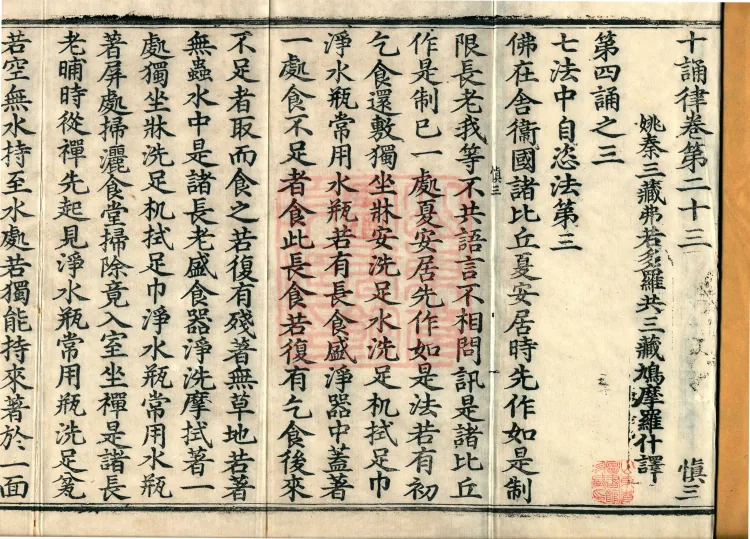 十誦律卷第二十三 慎三
姚秦三藏弗若多羅共三藏鳩摩羅什譯
第四誦之三
七法中自恣法第三
佛在舍衛國諸比丘夏安居時先作如是制
慎三
限長老我等不共語言不相問訊是諸比丘
作是制已一處夏安居先作如是法若有初
乞食還敷獨坐牀安洗足水洗足机拭足巾
淨水瓶常用水瓶若有長食盛淨器中蓋著
一處食不足者食此長食若復有乞食後來
不足者取而食之若復有殘著無草地若著
無蟲水中是諸長老盛食器淨洗摩拭著一
處獨坐牀洗足机拭足巾淨水瓶常用水瓶
著屏處掃灑食堂掃除竟入室坐禪是諸長
老晡時從禪先起見淨水瓶常用瓶洗足瓮
若空無水持至水處若獨能持來著於一面